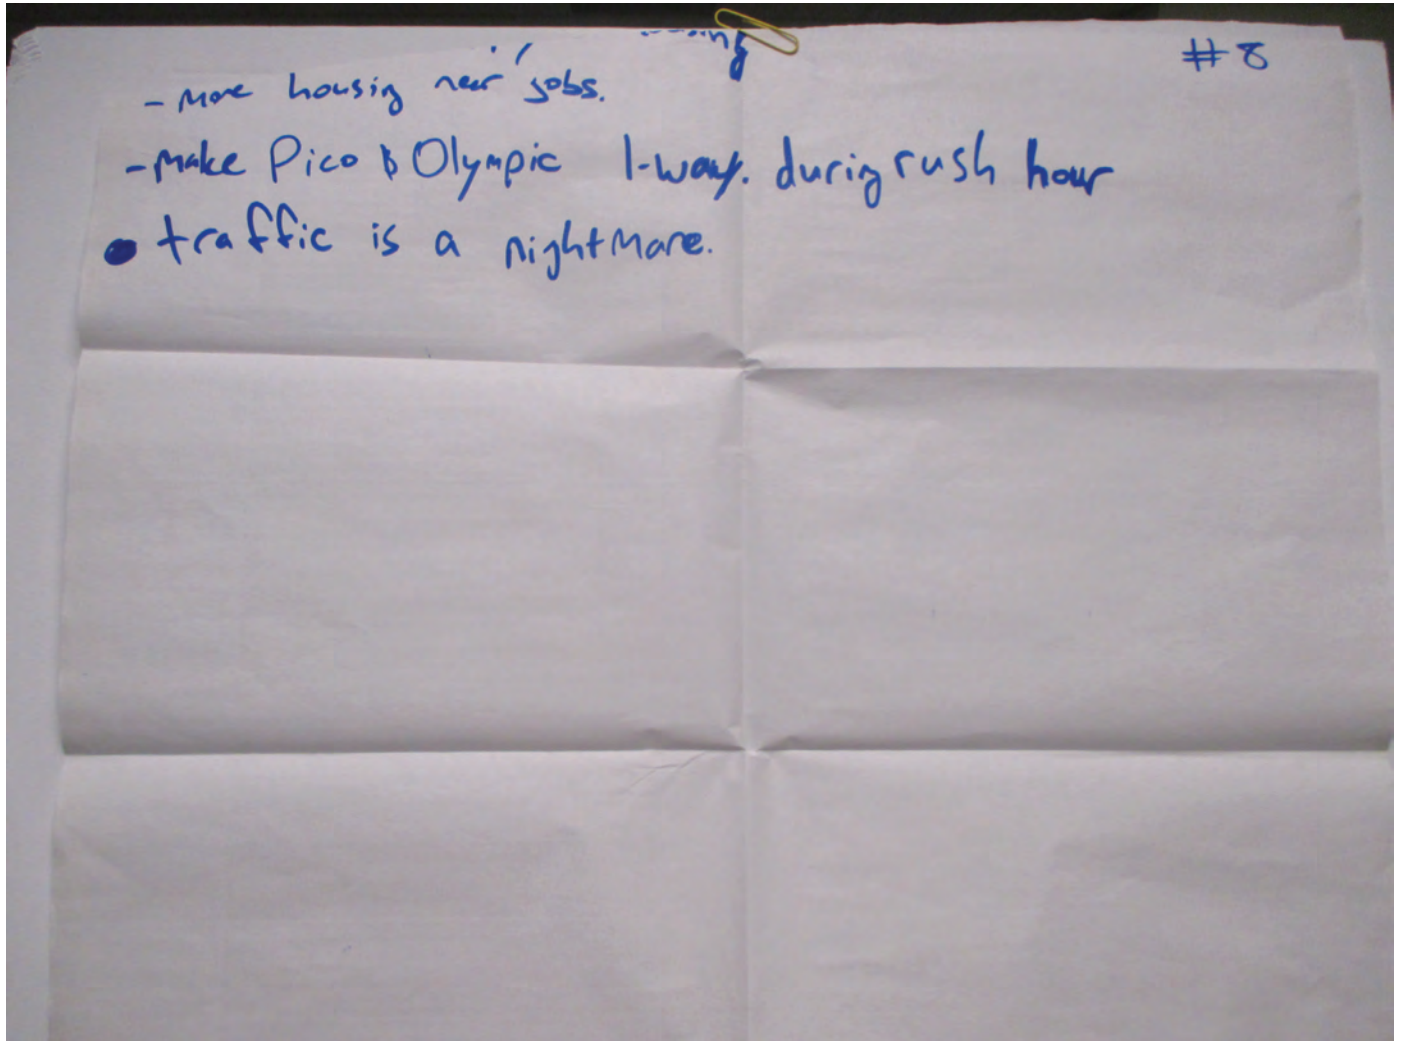 #8
- More housing near jobs.
- Make Pico & Olympic 1-way. during rush hour
• traffic is a nightmare.